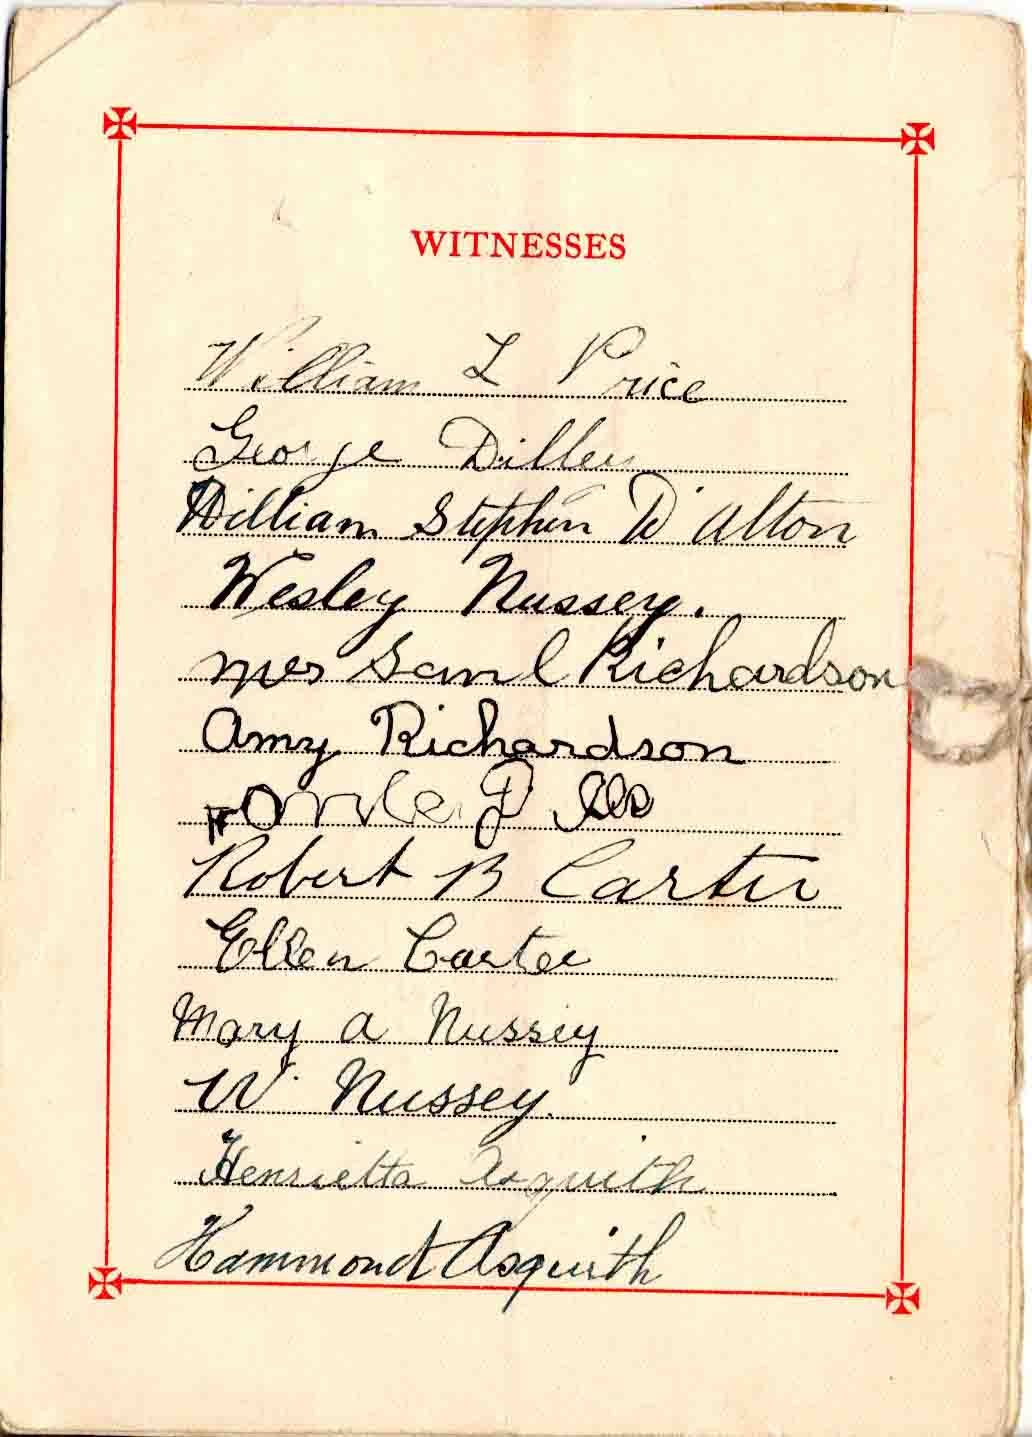 WITNESSES
William L Price
George Diller
William Stephen D'Alton
Wesley Nussey.
Mrs Saml Richardson
Amy Richardson
Robert B Carter
Ellen Carter
Mary A Nussey
W. Nussey.
Henrietta Asquith
Hammond Asquith